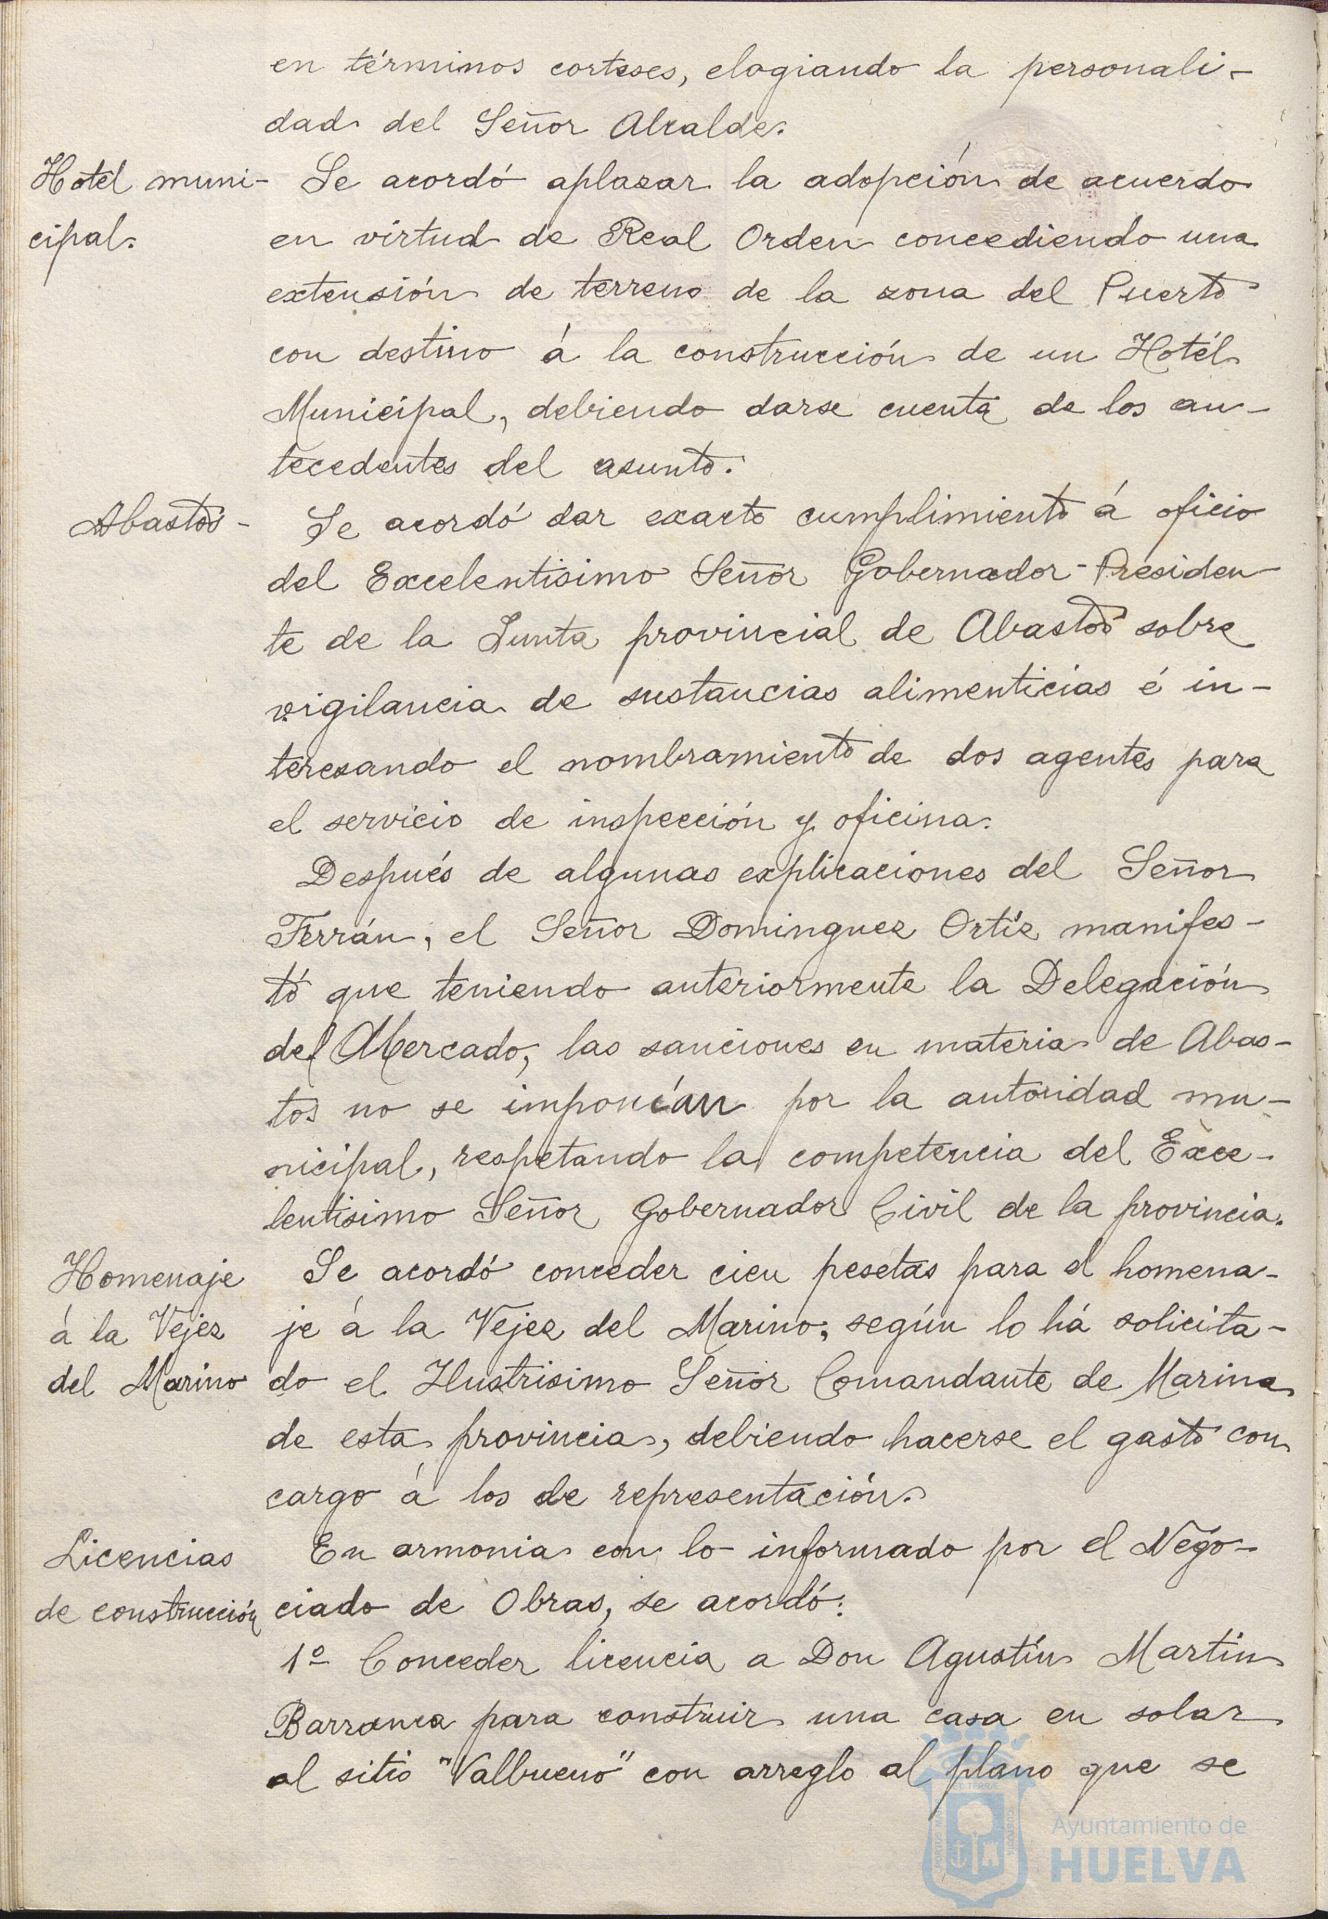 en términos corteses, elogiando la personali-
dad del Señor Alcalde.
Hotel muni-
cipal.
Se acordó aplazar la adopción de acuerdo
en virtud de Real Orden concediendo una
extensión de terreno de la zona del Puerto
con destino á la construcción de un Hotél
Municipal, debiendo darse cuenta de los an-
tecedentes del asunto.
Abastos-
Se acordó dar exacto cumplimiento á oficio
del Excelentisimo Señor Gobernador-Presiden-
te de la Junta provincial de Abastos sobre
vigilancia de sustancias alimenticias é in-
teresando el nombramiento de dos agentes para
el servicio de inspección y oficina.
Después de algunas explicaciones del Señor
Terrán, el Señor Dominguez Ortíz manifes-
tó que teniendo anteriormente la Delegación
del Mercado, las sanciones en materia de Abas-
tos no se imponían por la autoridad mu-
nicipal, respetando la competencia del Exce-
lentisimo Señor Gobernador Civil de la provincia.
Homenaje
á la Vejez
del Marino
Se acordó conceder cien pesetas para el homena-
je á la Vejez del Marino, según lo há solicita-
do el Ilustrisimo Señor Comandante de Marina
de esta provincia, debiendo hacerse el gasto con
cargo á los de representación.
Licencias
de construcción
En armonia con lo informado por el Nego-
ciado de Obras, se acordó:
1º Conceder licencia a Don Agustín Martin
Barranca para construir una casa en solar
al sitio "Valbueno" con arreglo al plano que se
Ayuntamiento de
HUELVA